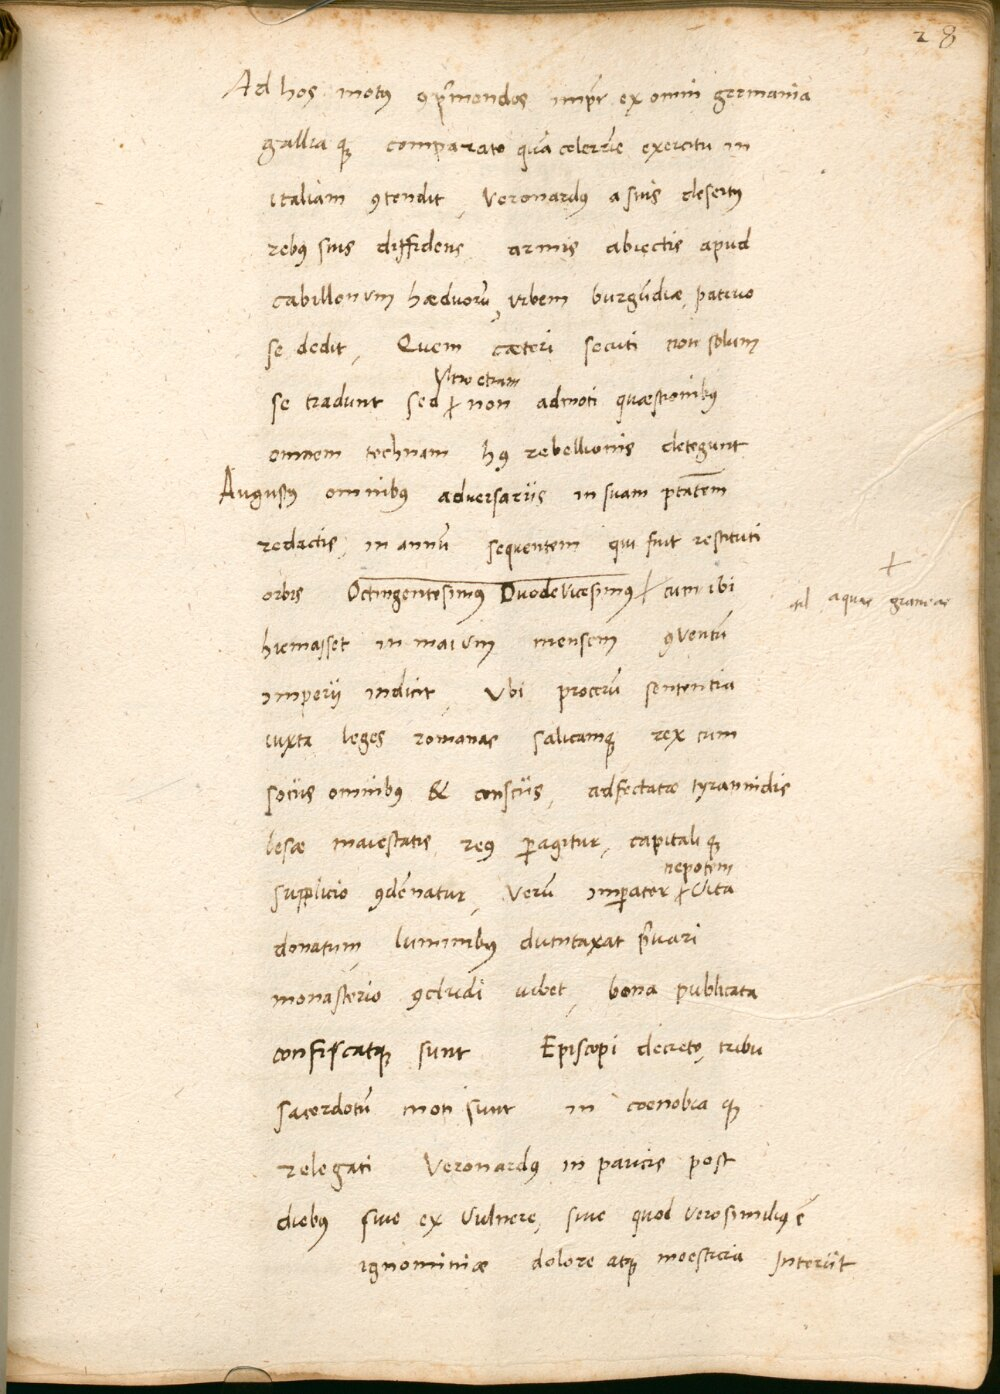 28
Ad hos motꝰ ꝯp̄mendos imp̄r ex omni germania
gallia qꝫ comparato quā celerrīe exercitu in
italiam ꝯtendit, Veronardꝰ a suis desertꝰ
rebꝰ suis diffidens armis abiectis apud
cabillonum hæduorū, urbem burgūdiæ patruo
se dedit, Quem cæteri secuti non solum
ultro etiam
se tradunt sed ⸠ non admoti quæstionibꝰ
omnem technam hꝰ rebellionis detegunt
Augustꝰ omnibꝰ adversariis in suam ptātem
redactis, in annū sequentem qui fuit restituti
orbis Octingentesimꝰ Duodevicesimꝰ ⸠ cum ibi
+
ad aquas graneas
hiemasset in maium mensem ꝯventū
imperij indicit, Ubi procerū sententia
iuxta leges romanas salicamqꝫ rex cum
sociis omnibꝰ & consciis, adfectatæ tyrannidis
lesæ maiestatis reꝰ ꝑagitur, capitali qꝫ
nepotem
supplicio ꝯdēnatur, Verū imꝑator ⸠ vita
donatum, luminibꝰ dumtaxat p̄vari
monasterio ꝯcludi iubet, bona publicata
confiscatqꝫ sunt Episcopi decreto, tribu
sacerdotū moti sunt in coenobia qꝫ
relegati Veronardꝰ in paucis post
diebꝰ sive ex vulnere, sive quod verosimiliꝰ ē
ignominiæ dolore atqꝫ moesticia Interiit